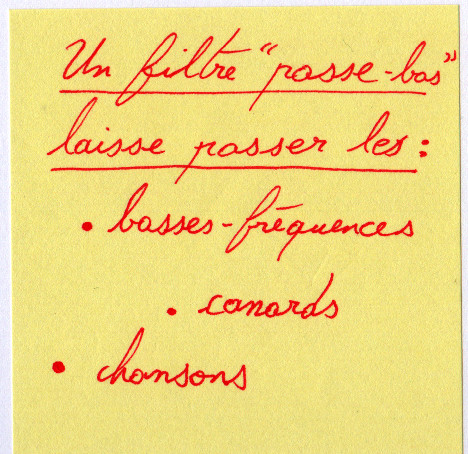 Un filtre "passe-bas"
laisse passer les :
• basses-fréquences
• canards
• chansons